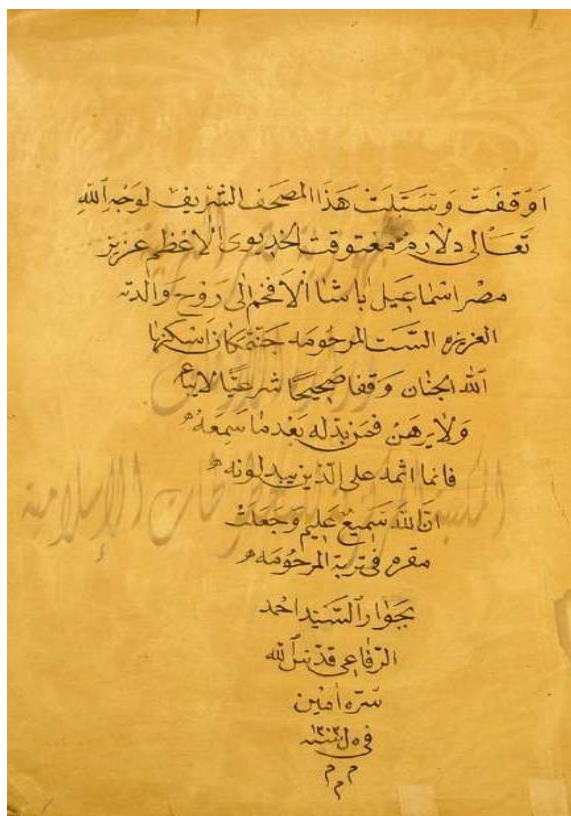 اوقفت وسبلت هذا المصحف الشريف لوجه الله
تعالى دلارم معتوقت الخديوى الاعظم عزيز
مصر اسماعيل باشا الافخم الى روح والدته
العزيزه الست المرحومه جنتمكان اسكنها
الله الجنان وقفا صحيحا شرعيا لا يباع
ولا يرهن فمن بدله بعد ما سمعه
فانما اثمه على الذين يبدلونه
ان الله سميع عليم وجعلت
مقره فى تربة المرحومه
بجوار السيد احمد
الرفاعى قدس الله
سره امين
فى سنة ١٣٠٣
م م م
المكتبة المركزية للمخطوطات الإسلامية